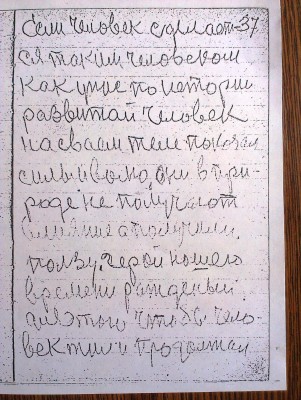 если человек сделает- 37
ся таким человеком
как у нас по истории
развитой человек
на сваем теле показал
силы
роде не получают
влияние а получили
ползу. герой нашего
времени рожденый
для этого чтобы чело-
век жил и продолжал